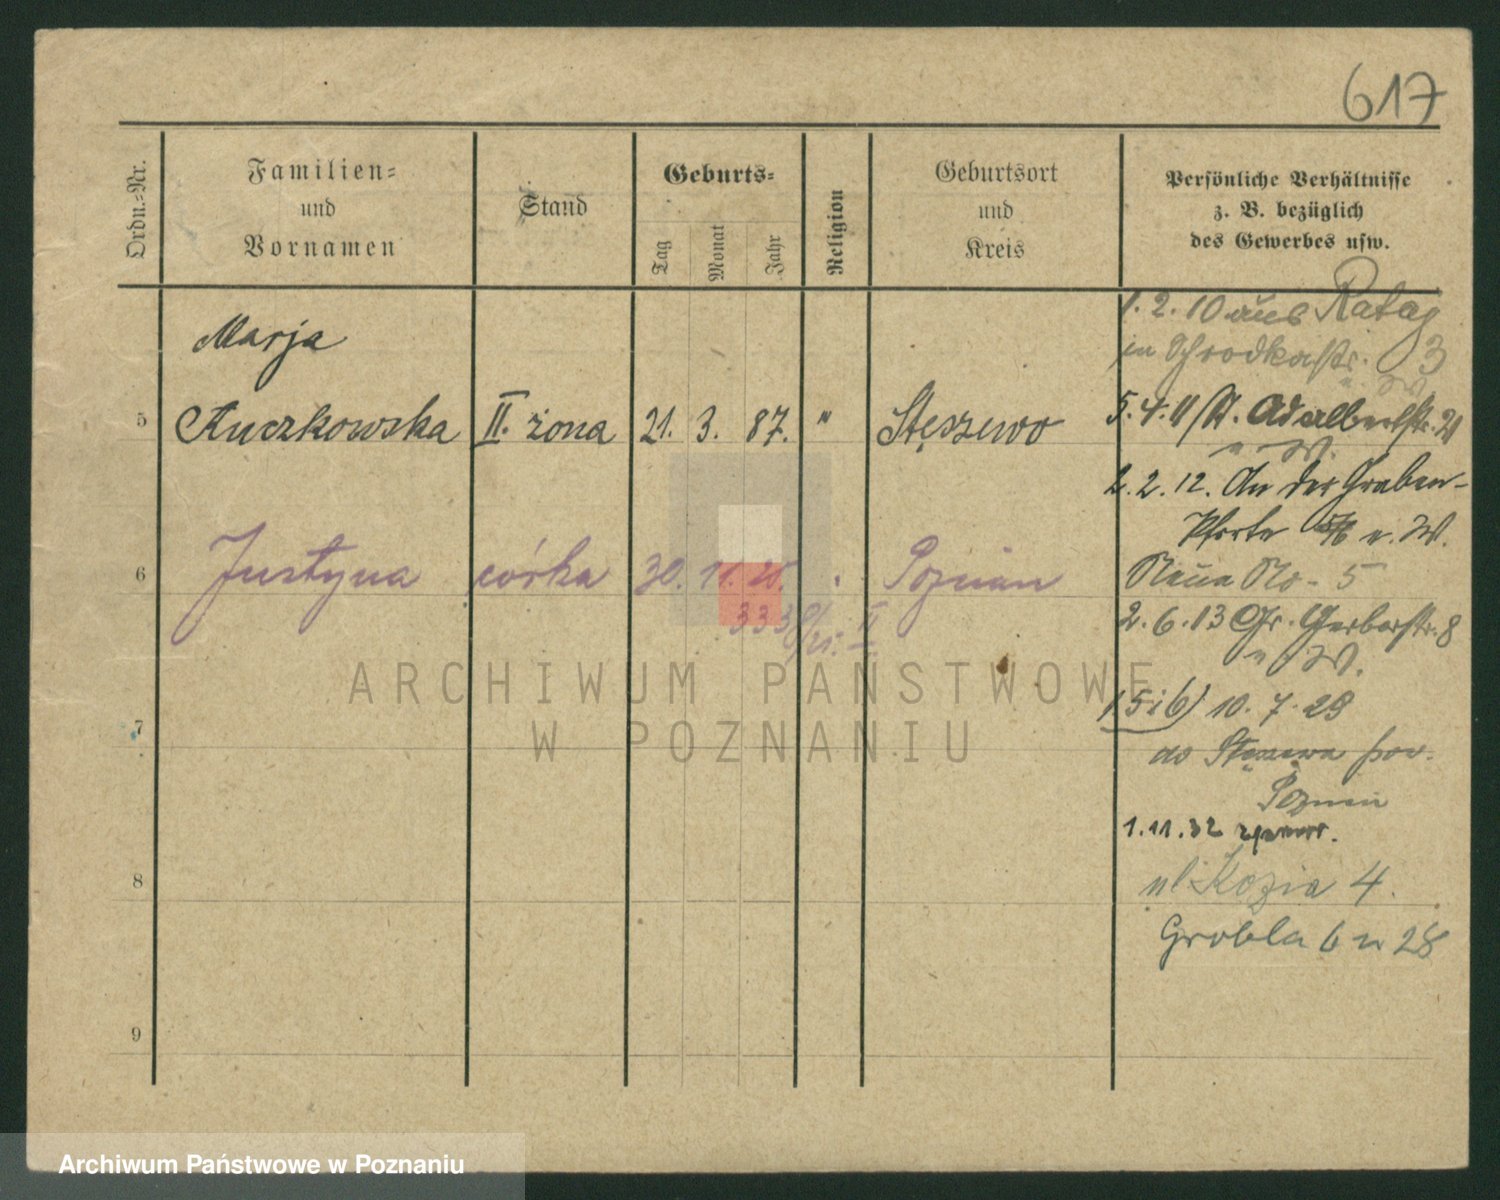 617
Ordn.-Nr.
Familien-
und
Vornamen
Stand
Geburts-
Tag
Monat
Jahr
Religion
Geburtsort
und
Kreis
Persönliche Verhältnisse
z. B. bezüglich
des Gewerbes usw.
1. 2. 10 aus Rataj
in Schrodkastr. 3
Marja
5 Kuczkowska II. żona 21. 3. 87. " Stęszewo
5. 4. 11 St. Adalbertstr. 21
u. W.
2. 2. 12. An der Graben-
Pforte u. W.
6 Justyna córka 30. 11. 25. Poznań
Neue No - 5
333
2. 6. 13 Gr. Gerberstr. 8
u W.
ARCHIWUM PAŃSTWOWE
W POZNANIU
7
5 i 6) 10. 7. 29
do Stęszewa pow.
Poznań
1. 11. 32
8
ul Kozia 4.
Grobla 6 28
9
Archiwum Państwowe w Poznaniu